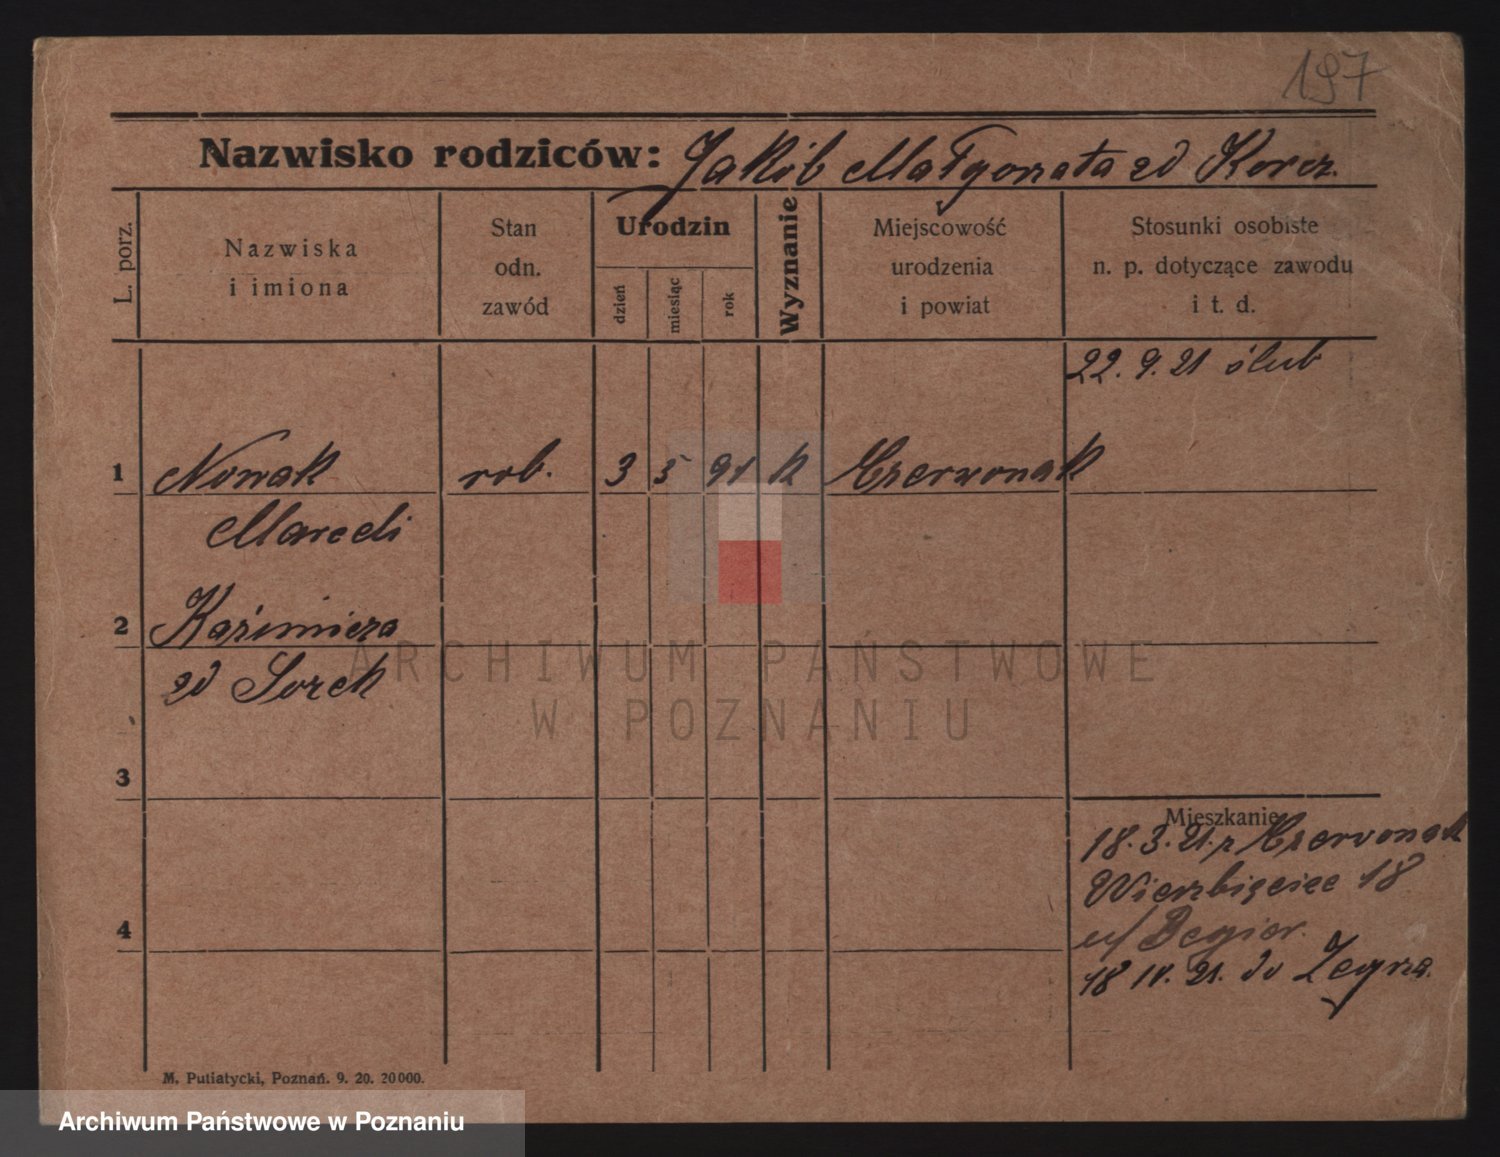 197
Nazwisko rodziców: Jakób Małgorzata zd Korcz.
L. porz.
Nazwiska
i imiona
Stan
odn.
zawód
Urodzin
dzień
miesiąc
rok
Wyznanie
Miejscowość
urodzenia
i powiat
Stosunki osobiste
n. p. dotyczące zawodu
i t. d.
22. 9. 21 ślub
1 Nowak rob. 3 5 91 k Czerwonak
Marceli
2 Kaźimiera
zd Sorek
3
Mieszkanie
18. 3. 21. z Czerwonak
Wierzbięcice 18
4
u/ Begier.
18 IV. 21. do Zegrza.
M. Putiatycki, Poznań. 9. 20. 20000.
ARCHIWUM PAŃSTWOWE
W POZNANIU
Archiwum Państwowe w Poznaniu